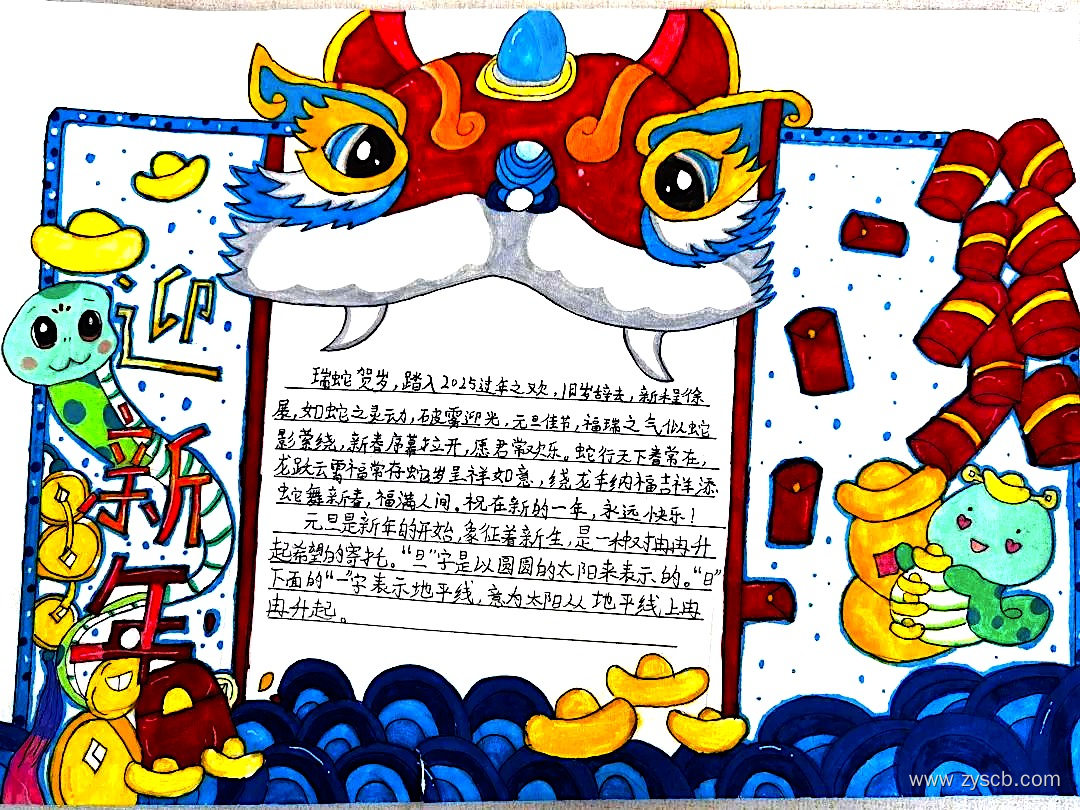 迎
新
年
瑞蛇贺岁,踏入2025过年之欢,旧岁辞去,新禾呈徐
展,如蛇之灵动,破雾迎光,元旦佳节,福瑞之气似蛇
影萦绕,新春序幕拉开,愿君常欢乐。蛇行天下春常在,
龙跃云霄福常存蛇岁呈祥如意,绕龙年纳福吉祥添
蛇舞新春,福满人间。祝在新的一年,永远快乐!
元旦是新年的开始,象征着新生,是一种对冉冉升
起希望的寄托。“旦”字是以圆圆的太阳来表示的。“日”
下面的“一”字表示地平线,意为太阳从地平线上冉
冉升起。
www.zyscb.com